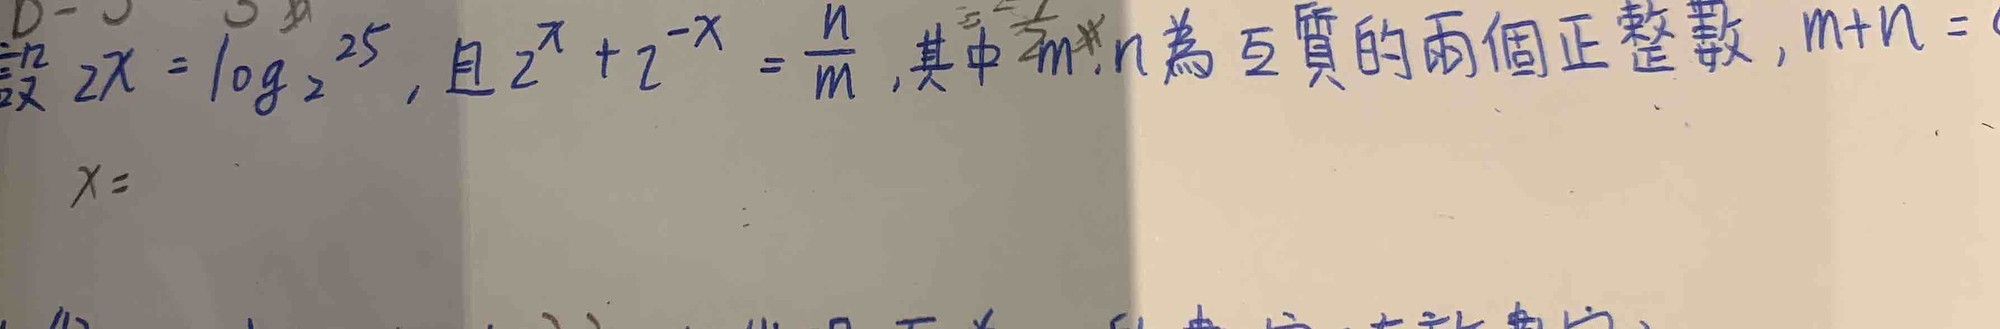 設 2x = log₂25, 且 2^x + 2^-x = n/m, 其中 m, n 為互質的兩個正整數, m+n =
x =